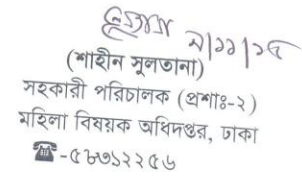 ৯|১১|১৫
(শাহীন সুলতানা)
সহকারী পরিচালক (প্রশাঃ-২)
মহিলা বিষয়ক অধিদপ্তর, ঢাকা
☎-৫৮৩১২২৫৬